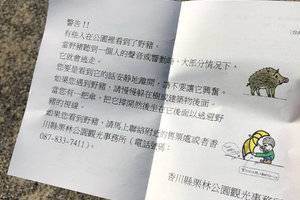 警告!!
有些人在公園裡看到了野豬。
當野豬聽到一個人的聲音或警動時,大部分情況下,
它就會逃走。
您要是看到它的話安靜地離開,為不要讓它興奮。
如果您遇到野豬,請慢慢躲在樹或建築物後面。
當您有一把傘,把它撐開然後坐在它後面以逃避野
豬的視線。
如果您看到野豬,請馬上聯絡附近的售票處或者香
川縣栗林公園觀光事務所(電話號碼:
087-833-7411)。
香川縣栗林公園觀光事務所